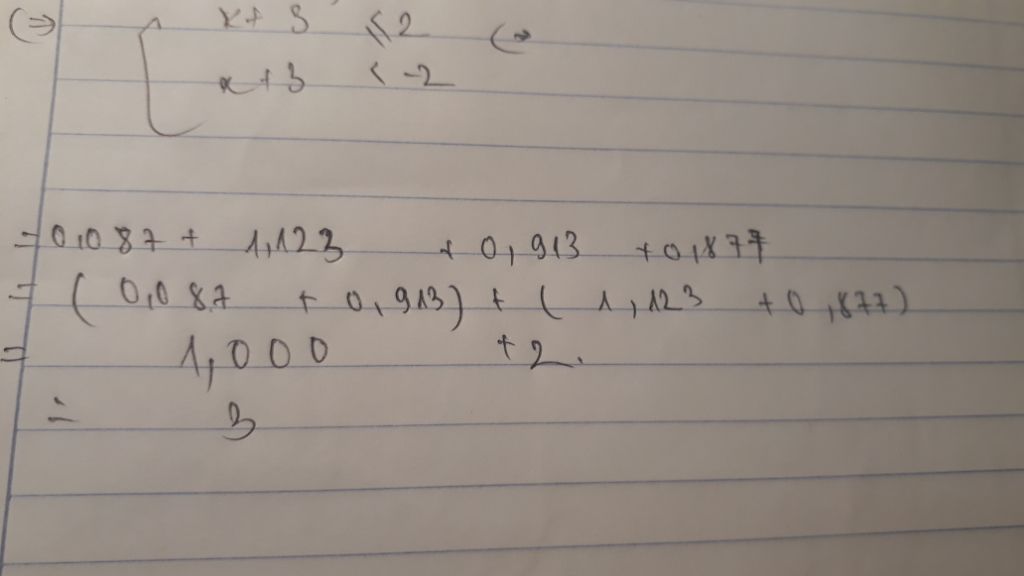 (⇒) x + 3 ⩽ 2 (⇒
x + 3 < -2
= 0,087 + 1,123 + 0,913 + 0,877
= (0,087 + 0,913) + (1,123 + 0,877)
= 1,000 + 2.
= 3